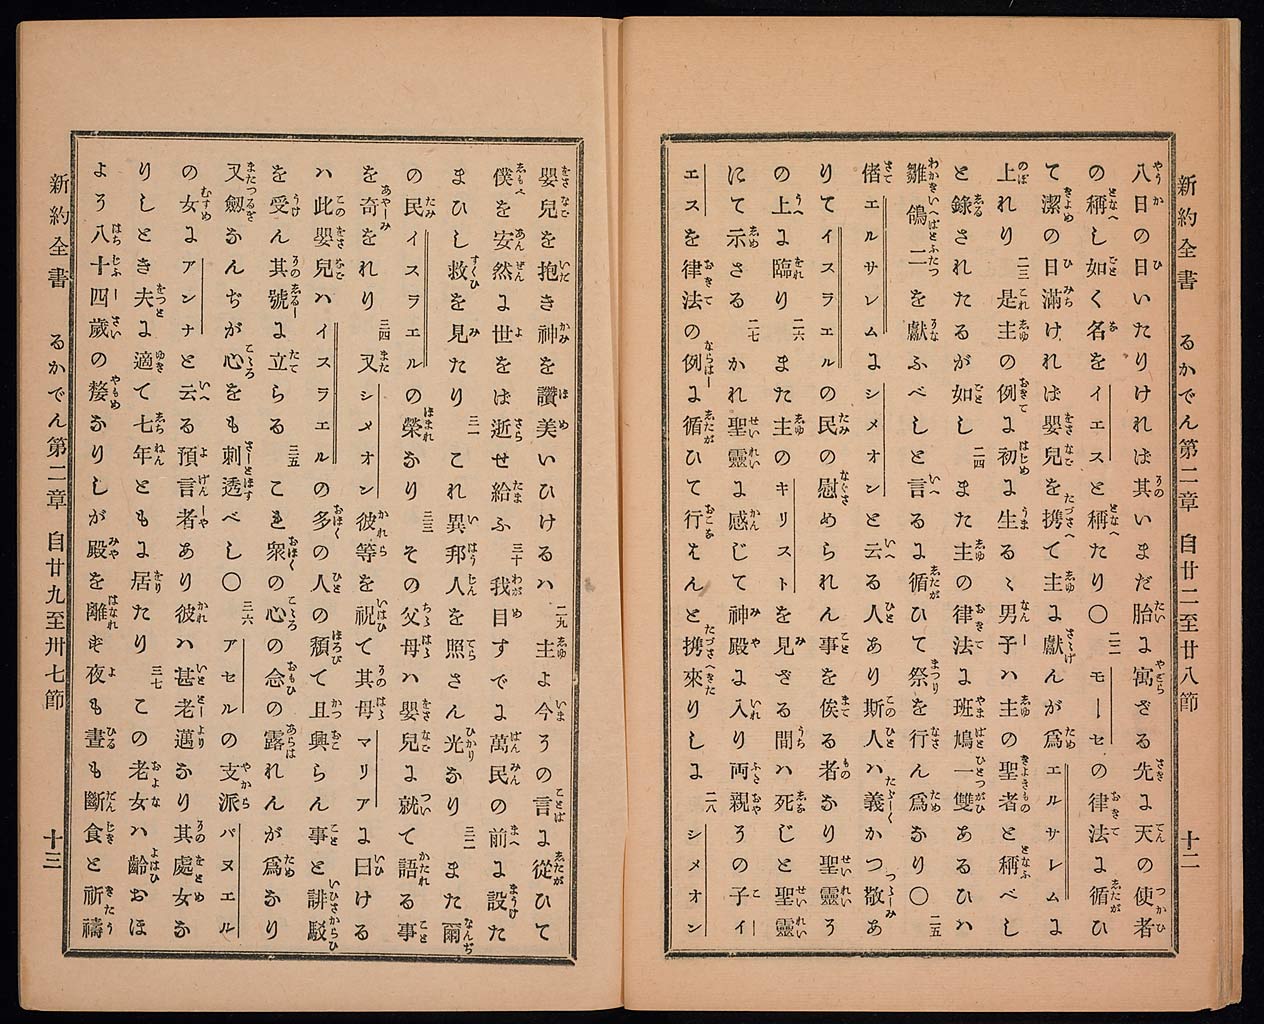 新約全書　るかでん第二章　自廿二至廿八節　十二
八日の日いたりければ其いまだ胎に寓ざる先に天の使者
の稱し如く名をイエスと稱たり〇 二二 モーセの律法に循ひ
て潔の日滿ければ嬰兒を携て主に獻んが爲エルサレムに
上れり 二三 是主の例に初に生るゝ男子ハ主の聖者と稱べし
と錄されたるが如し 二四 また主の律法に班鳩一雙あるひハ
雛鴿二を獻ふべしと言るに循ひて祭を行ん爲なり〇 二五
偖エルサレムにシメオンと云る人あり斯人ハ義かつ敬あ
りてイスラエルの民の慰められん事を俟る者なり聖靈そ
の上に臨り 二六 また主のキリストを見ざる間ハ死じと聖靈
にて示さる 二七 かれ聖靈に感じて神殿に入り両親その子イ
エスを律法の例に循ひて行はんと携來りしに 二八 シメオン
嬰兒を抱き神を讚美いひけるハ 二九 主よ今その言に從ひて
僕を安然に世をば逝せ給ふ 三十 我目すでに萬民の前に設た
まひし救を見たり 三一 これ異邦人を照さん光なり 三二 また爾
の民イスラエルの榮なり 三三 その父母ハ嬰兒に就て語る事
を奇をれり 三四 又シメオン彼等を祝て其母マリアに曰ける
ハ此嬰兒ハイスラエルの多の人の頽て且興らん事と誹駁
を受ん其號に立らる 三五 これ衆の心の念の露れんが爲なり
又劔なんぢが心をも刺透べし〇 三六 アセルの支派パヌエル
の女にアンナと云る預言者あり彼ハ甚老邁なり其處女な
りしとき夫に適て七年ともに居たり 三七 この老女ハ齡おほ
よそ八十四歲の嫠なりしが殿を離ず夜も晝も斷食と祈禱
新約全書　るかでん第二章　自廿九至卅七節　十三